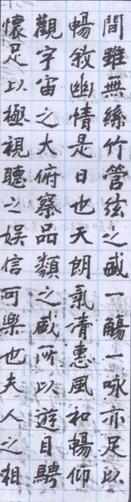 間雖無絲竹管弦之盛一觴一咏亦足以
暢敘幽情是日也天朗氣清惠風和暢仰
觀宇宙之大俯察品類之盛所以遊目騁
懷足以極視聽之娛信可樂也夫人之相